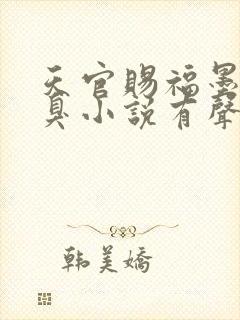 天官賜福墨
臭小說有聲
韩美嬌